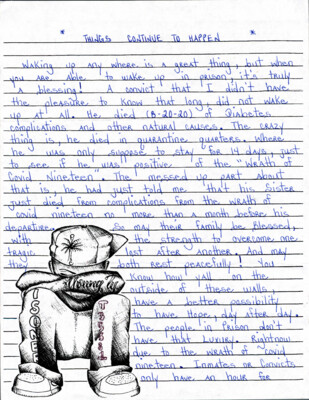 * THINGS CONTINUE TO HAPPEN *
Waking up any where is a great thing, but when
you are able to wake up in prison, it's truly
a blessing! A convict that I didn't have
the pleasure to know that long, did not wake
up at all. He died (8-20-20) of Diabetes
complications and other natural causes. The crazy
thing is he died in quarantine quarters. Where
he was only suppose to stay for days, just
to see if he was positive of the "Wrath of
Covid Nineteen". The messed up part about
that is, he had just told me that his sister
just died from complications from the wrath of
covid nineteen no more than a month before his
departure. So may their family be blessed,
with the strength to overcome one
tragic lost after another. And may
they both rest peacefully! You
know how yall on the
outside of these walls,
have a better possibility
to have Hope, day after day.
The people in Prison don't
have that Luxury. Right now
due to the wrath of Covid
nineteen. Inmates or Convicts
only have an hour for
Young